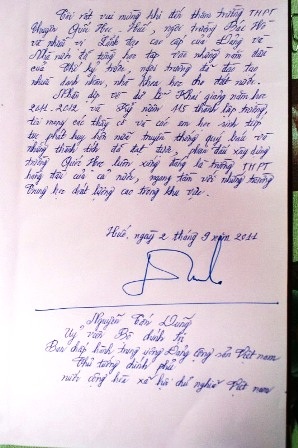 Tôi rất vui mừng khi đến thăm trường THPT
chuyên Quốc Học Huế, ngôi trường Bác Hồ
và nhiều vị Lãnh đạo cao cấp của Đảng và
Nhà nước đã từng học tập vào những năm đầu
của Thế kỷ trước, ngôi trường đã đào tạo
nhiều danh nhân, nhà khoa học cho đất nước.
Nhân dịp về dự lễ Khai giảng năm học
2011-2012 và Kỷ niệm 115 thành lập trường,
tôi mong các thầy cô và các em học sinh tiếp
tục phát huy hơn nữa truyền thống quý báu và
những thành tích đã đạt được, phấn đấu xây dựng
trường Quốc Học luôn xứng đáng là trường THPT
hàng đầu của cả nước, ngang tầm với những trường
Trung học chất lượng cao trong khu vực.
Huế, ngày 2 tháng 9 năm 2011
Nguyễn Tấn Dũng
Uỷ viên Bộ chính trị
Ban chấp hành trung ương Đảng cộng sản Việt nam
Thủ tướng chính phủ
nước cộng hòa xã hội chủ nghĩa Việt nam